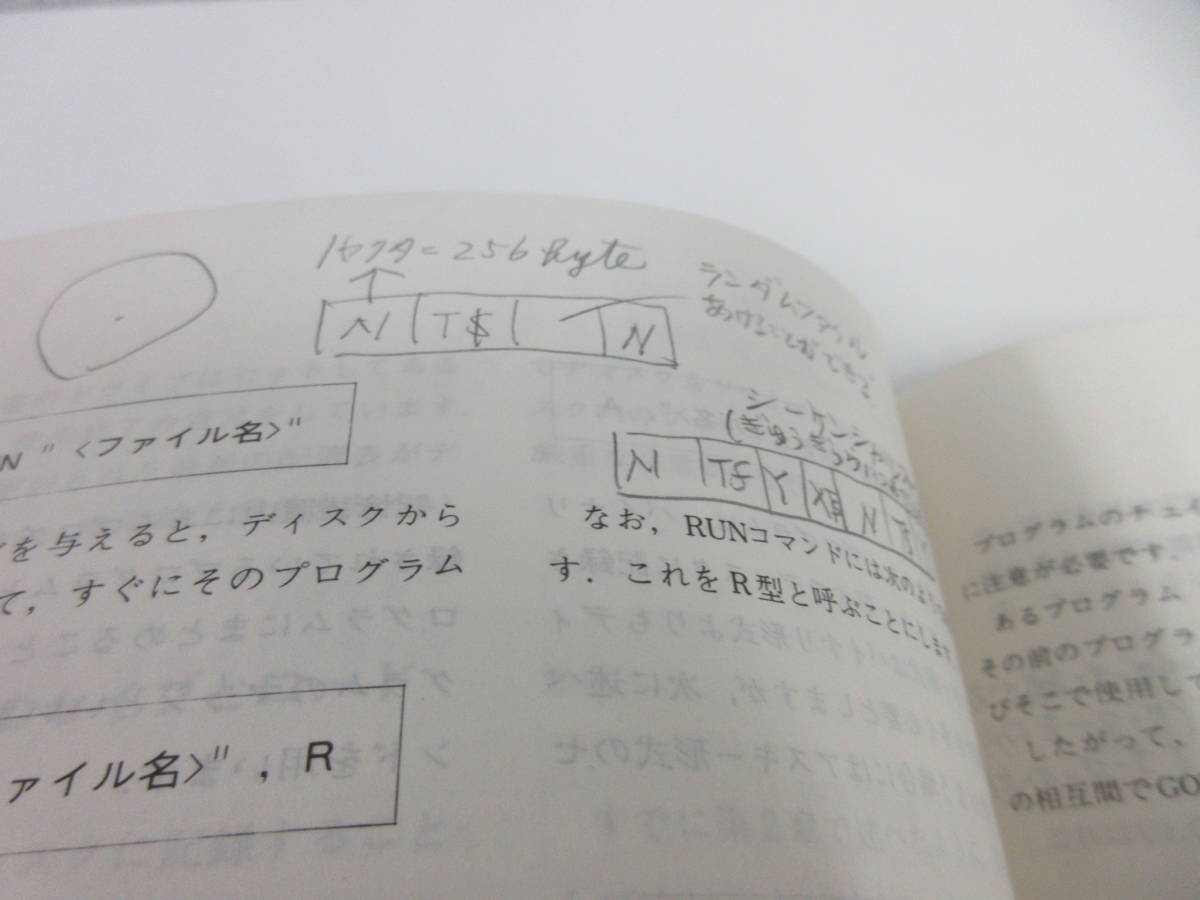 1セクタ=256 Byte
N T$ N
ランダムファイル
あけることができる
シーケンシャル
(ぎゅうぎゅう
N T$ Y X$ N
N "<ファイル名>"
を与えると，ディスクから
て，すぐにそのプログラム
ァイル名>", R
なお，RUNコマンドには次のよう
す．これをR型と呼ぶことにします
プログラムのチェ
に注意が必要です．
あるプログラム
その前のプログラ
びそこで使用して
したがって，
の相互間でGO